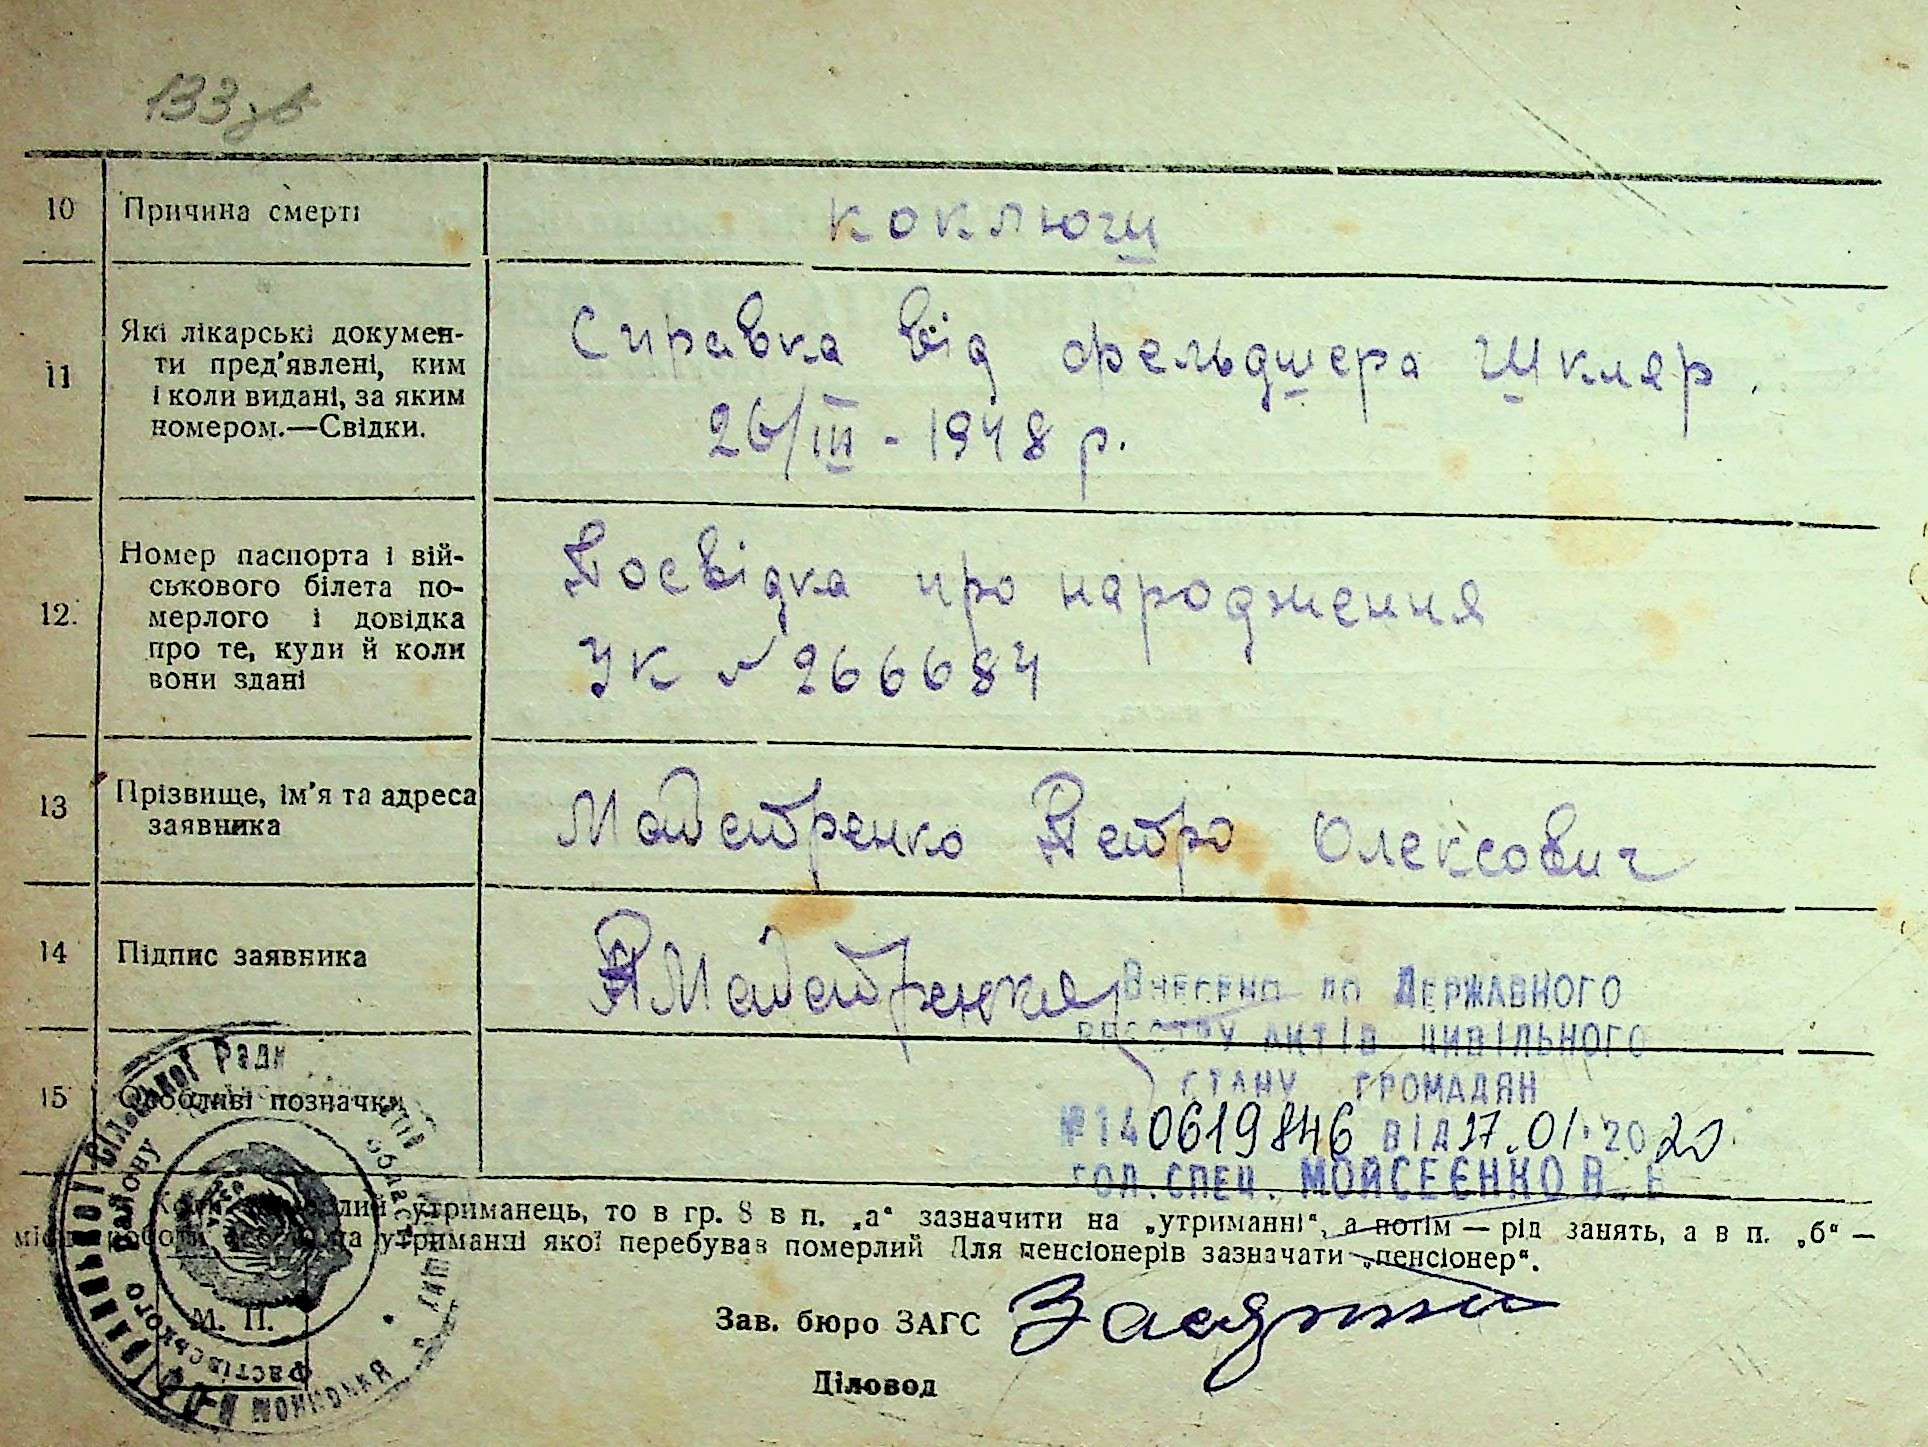 133 зв
10 Причина смерті коклюш
11 Які лікарські докумен-
ти пред'явлені, ким
і коли видані, за яким
номером.—Свідки.
Справка від фельдшера Шкляр.
26/III - 1948 р.
12. Номер паспорта і вій-
ськового білета по-
мерлого і довідка
про те, куди й коли
вони здані
Посвідка про народження
УК № 266684
13 Прізвище, ім'я та адреса
заявника
Майстренко Петро Олексович
14 Підпис заявника
ПМайстренко
Внесено до Державного
реєстру актів цивільного
стану громадян
№ 140619846 від 17.01.2020
гол. спец. Мойсеєнко В. В
15 Особливі позначки
утриманець, то в гр. 8 в п. „а" зазначити на „утриманні", а потім — рід занять, а в п. „б" —
на утриманні якої перебував померлий Для пенсіонерів зазначати „пенсіонер".
М. П.
Сільської Ради
Фастівського району
області
Зав. бюро ЗАГС
Діловод